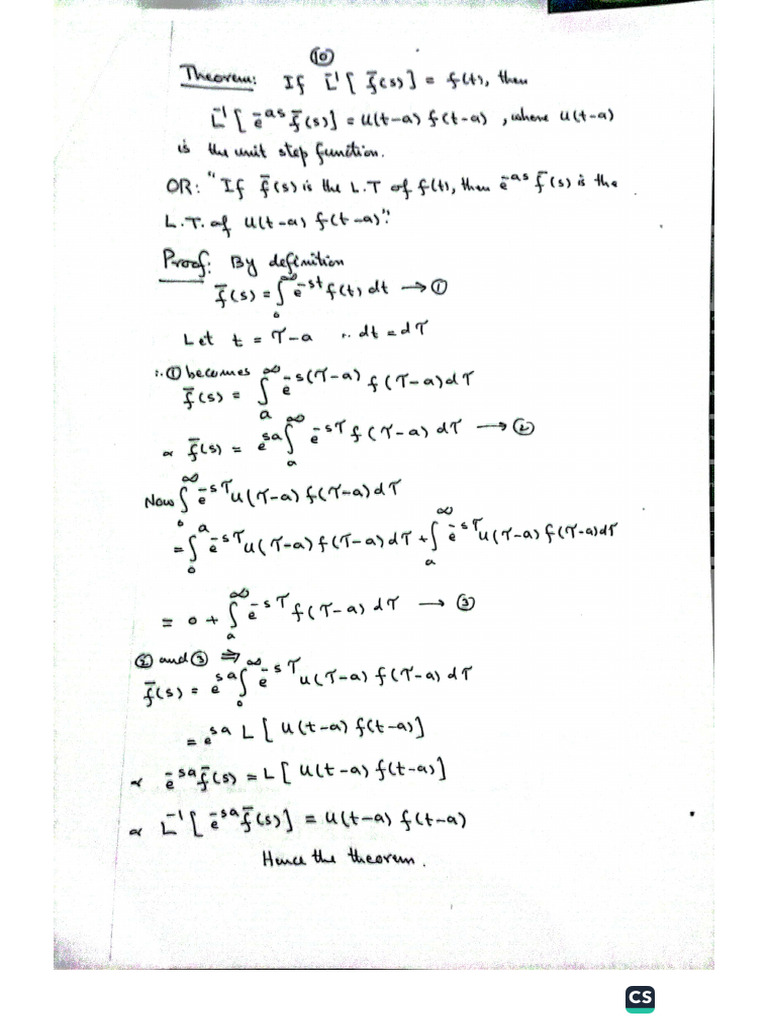 ⑩
Theorem: If L⁻¹[ f̄(s)] = f(t), then
L⁻¹[ e⁻ᵃˢ f̄(s)] = u(t-a) f(t-a) , where u(t-a)
is the unit step function.
OR: "If f̄(s) is the L.T of f(t), then e⁻ᵃˢ f̄(s) is the
L.T. of u(t-a) f(t-a)".
Proof: By definition
f̄(s) = ∫₀^∞ e^{-st} f(t) dt → ①
Let t = τ-a ∴ dt = dτ
∴ ① becomes
f̄(s) = ∫ₐ^∞ e^{-s(τ-a)} f(τ-a) dτ
or f̄(s) = e^{sa} ∫ₐ^∞ e^{-sτ} f(τ-a) dτ → ②
Now ∫₀^∞ e^{-sτ} u(τ-a) f(τ-a) dτ
= ∫₀^a e^{-sτ} u(τ-a) f(τ-a) dτ + ∫ₐ^∞ e^{-sτ} u(τ-a) f(τ-a) dτ
= 0 + ∫ₐ^∞ e^{-sτ} f(τ-a) dτ → ③
② and ③ ⇒
f̄(s) = e^{sa} ∫₀^∞ e^{-sτ} u(τ-a) f(τ-a) dτ
= e^{sa} L[ u(t-a) f(t-a)]
or e^{-sa} f̄(s) = L[ u(t-a) f(t-a)]
or L⁻¹[ e^{-sa} f̄(s)] = u(t-a) f(t-a)
Hence the theorem.
CS